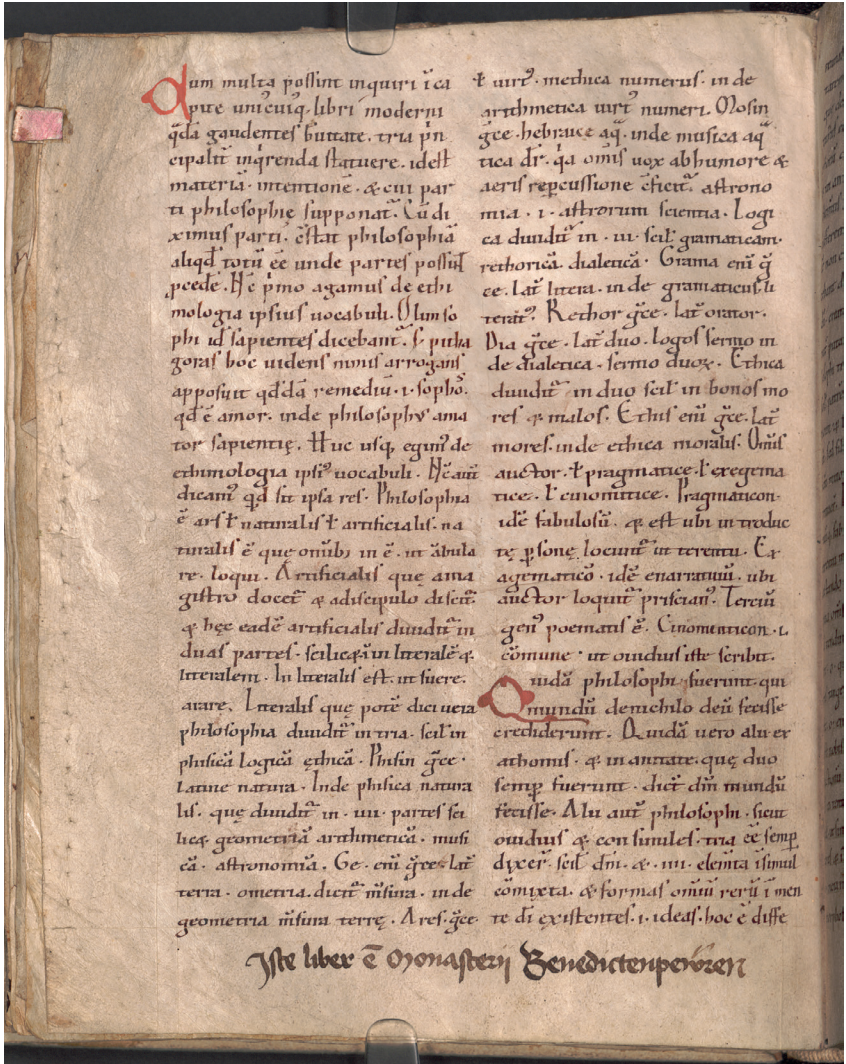 Cum multa possint inquiri ī ca
pite uniꝰcuiꝗ, libri moderni
q̄dā gaudentes b̄uitate. tria p̄n
cipalit̄ inq̄renda statuere. idest
materiā. intentionē. & cui par
ti philosophię supponat᷒. Cū di
ximus parti. c̄stat philosophiā
aliqd̄ totū eē unde partes possīt
p̄cede. H̄c p̄mo agamus de ethi
mologia ipsius uocabuli. Olim so
phi id sapientes dicebant᷒. S; pitha
goras hoc uidens nimis arrogans
apposuit qd̄dā remediū. i. sophoꝰ.
qd̄ ē amor. inde philosophꝰ ama
tor sapientię. Huc usq, egimꝰ de
ethimologia ipsiꝰ uocabuli. H̄c aūt
dicamꝰ qd̄ sit ipsa res. Philosophia
ē ars ł naturalis ł artificialis. na
turalis ē que omīb; in ē. ut ābula
re. loqui. Artificialis quę ama
gistro docet᷒ & adiscipulo discit᷒.
& hęc eadē artificialis diuidit᷒ in
duas partes. scilic& in literalē &
literalem. In literalis est. ut suere.
arare. Literalis quę potē dici uera
philosophia diuidit᷒ in tria. scil̄ in
phisicā logicā ęthicā. Phisin ḡce.
latine natura. Inde phisica natura
lis. quę diuidit᷒ in. iiii. partes sci
lic& geometriā arithmeticā. musi
cā. astronomiā. Ge. enī ḡce. lat̄
terra. ometria. dicit᷒ m̄sura. in de
geometria m̄sura terrę. Ares. ḡce.
ł uirtꝰ. methica numerus. in de
arithmetica uirtꝰ numeri. Mosin
ḡce. hebraice aq̄. inde musica aq̄
tica dr̄. q̄a omīs uox ab humore &
aeris rep̄cussione c̄ficit᷒. astrono
mia. i. astrorum scientia. Logi
ca diuidit᷒ in. iii. scil̄ gramaticam.
rethoricā. dialeticā. Grama enī ḡ
ce. lat̄ litera. in de gramaticus li
teratꝰ. Rethor ḡce. lat̄ orator.
Dia ḡce. lat̄ duo. logos sermo in
de dialetica. sermo duoꝝ. Ethica
diuidit᷒ in duo scil̄ in bonos mo
res & malos. Ethis enī ḡce. lat̄
mores. inde ethica moralis. Om̄is
auctor. ł pragmatice. ł exegema
tice. ł cinomitice. Pragmaticon.
idē fabulosū. & est ubi in troduc
tę p̱sonę locunt᷒ ut terentii. Ex
agematicō. idē enarratiuū. ubi
auctor loquit᷒ priscianꝰ. Terciū
genꝰ poematis ē. Cinomiticon. i.
cōmune. ut ouidius iste scribit.
Quidā philosophi fuerunt qui
mundū denichilo deū fecisse
crediderunt. Quidā uero alii ex
athomis. & inanitate. quę duo
semp̱ fuerunt. dict̄ dm̄ mundū
fecisse. Alii aut̄ philosophi. sicut
ouidius & consimiles. tria eē semp̱
dixer̄. scil̄ dm̄. &. iiii. elem̄ta īsimul
cōmixta. & formas omiū rerū ī men
te dī existentes. i. ideas. hoc ē diffe
Iste liber ē Monasterii Benedictenpewren